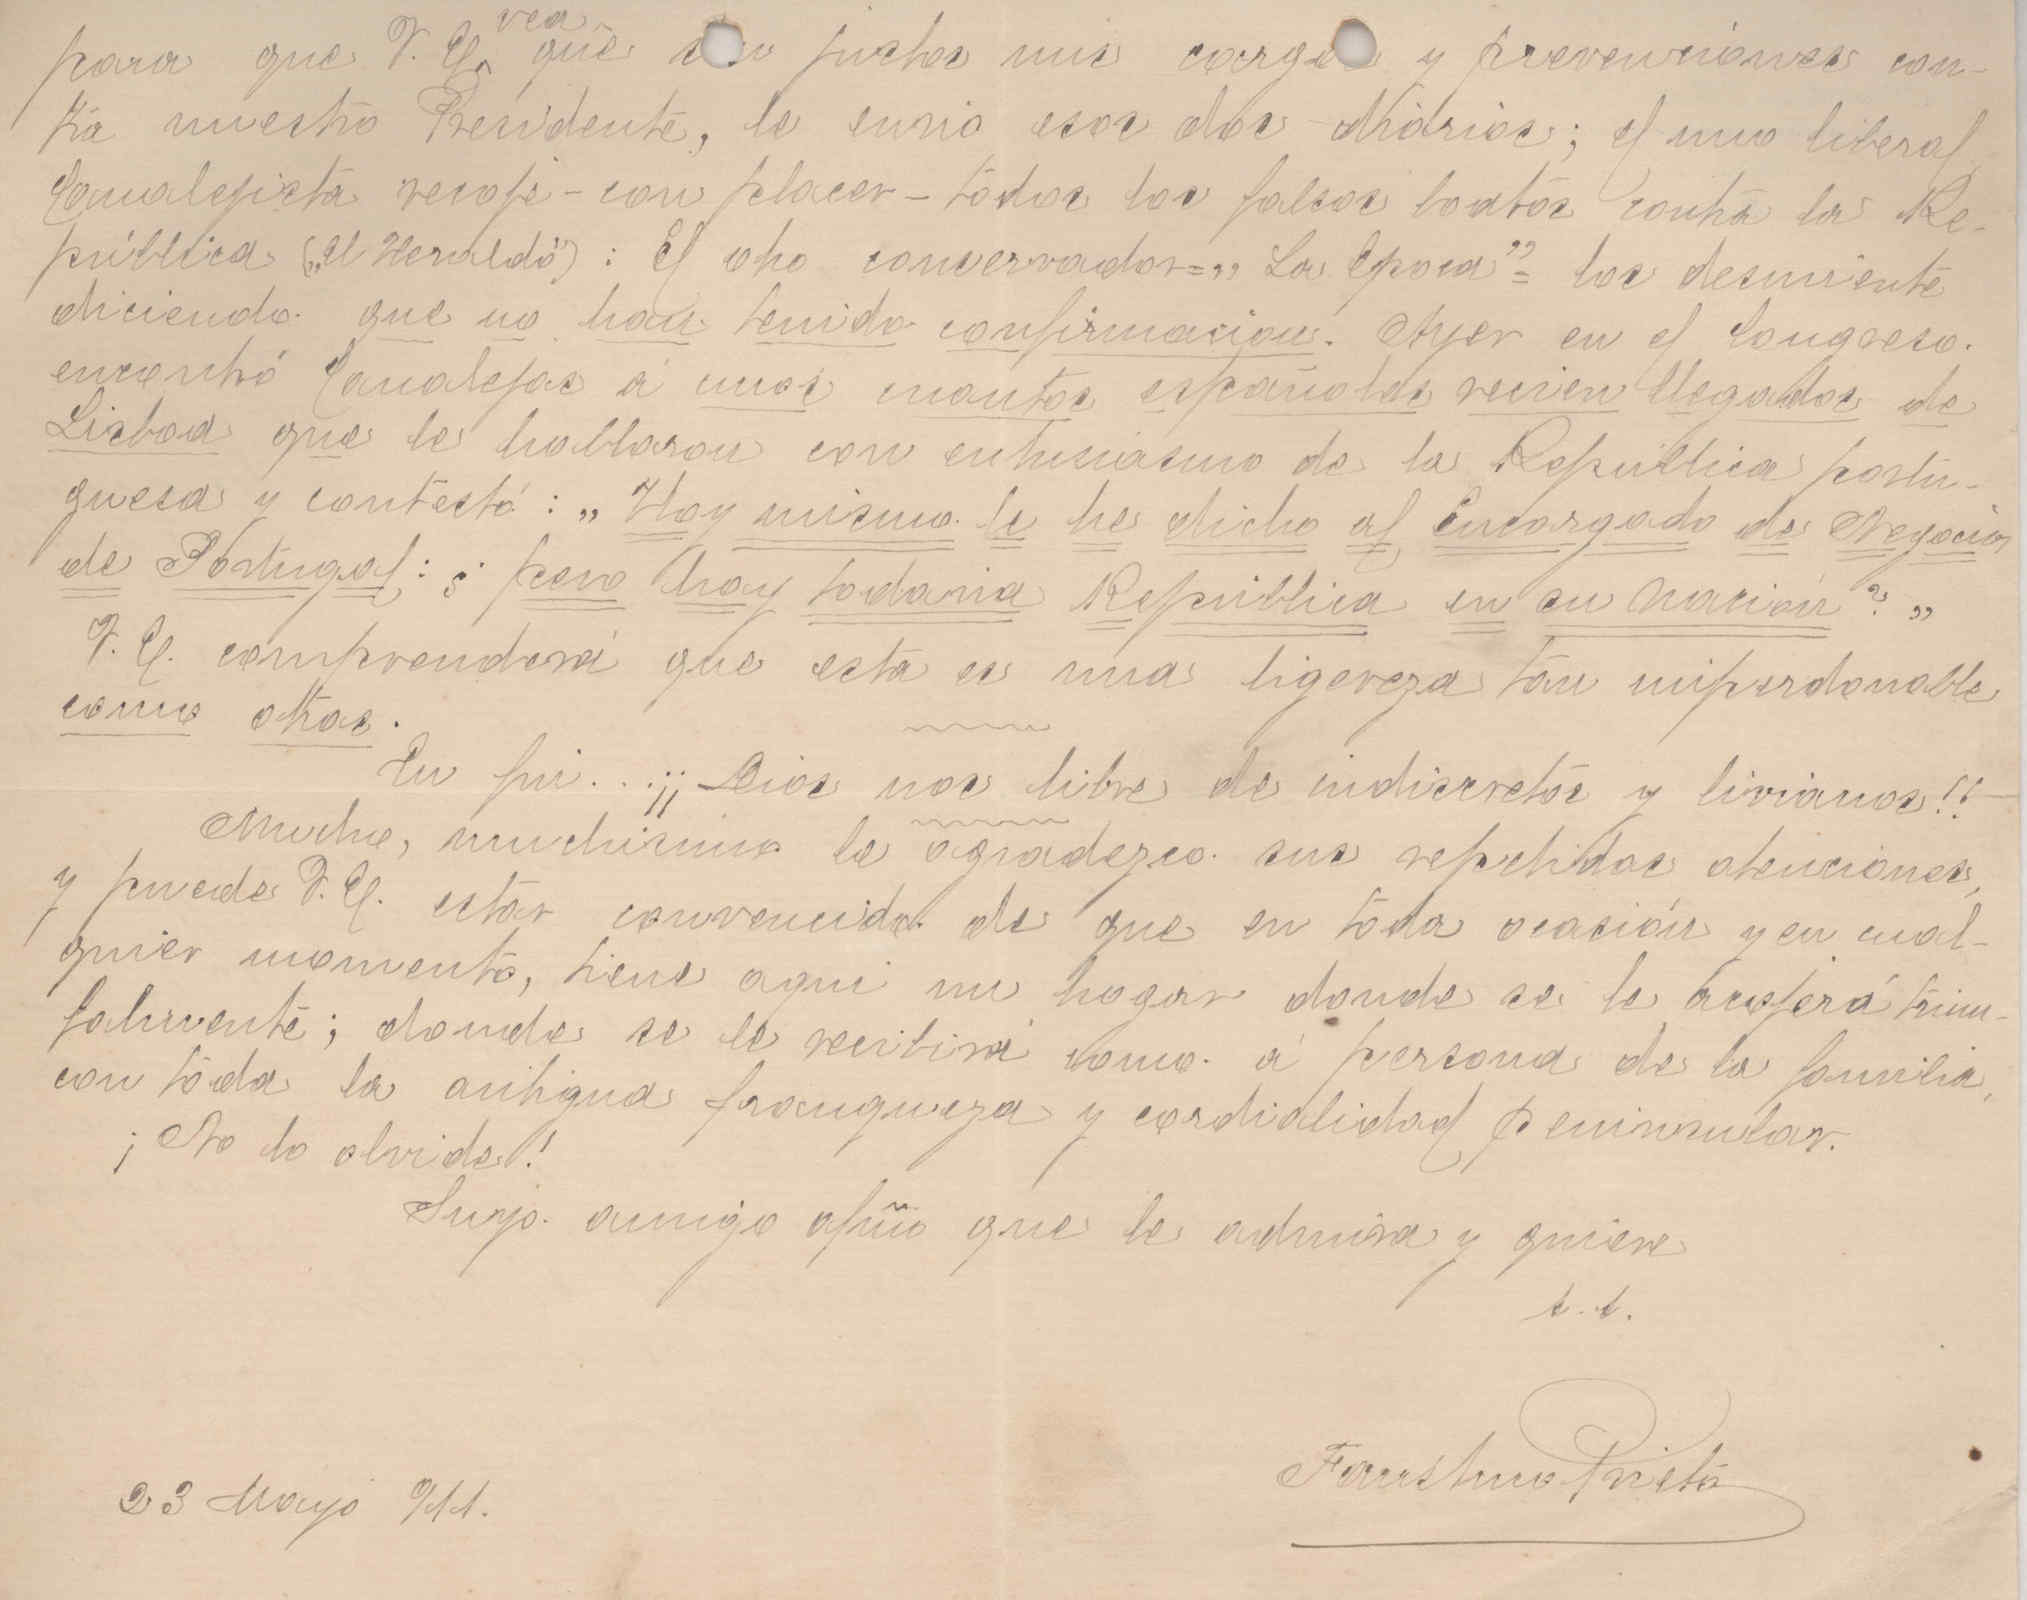 para que V. E. vea que son justos mis cargos y prevenciones con-
tra nuestro Presidente, le envio esos dos diarios; el uno liberal
Canalejista recoje - con placer - todos los falsos boatos contra la Re-
pública („El Heraldo”) : El otro conservador = „La Epoca” = los desmiente
diciendo que no han tenido confirmacion. Ayer en el Congreso
encontró Canalejas á unos cuantos españoles recien llegados de
Lisboa que le hablaron con entusiasmo de la República portu-
guesa y contestó : „Hoy mismo le he dicho al Encargado de Negocios
de Portugal : ¿ pero hay todavia República en su nación ? „
V. E. comprenderá que esta es una ligereza tan imperdonable
como otras.
En fin . . . ¡¡ Dios nos libre de indiscretos y livianos !!
Mucho, muchisimo le agradezco sus repetidas atenciones,
y puede V. E. estar convencido de que en toda ocasión y en cual-
quier momento, tiene aqui un hogar donde se le
; donde se le recibirá como á persona de la familia,
con toda la antigua franqueza y cordialidad peninsular.
¡ No lo olvide !
Suyo amigo afmo que le admira y quiere
s. s.
Faustino Prieto
23 Mayo 911.